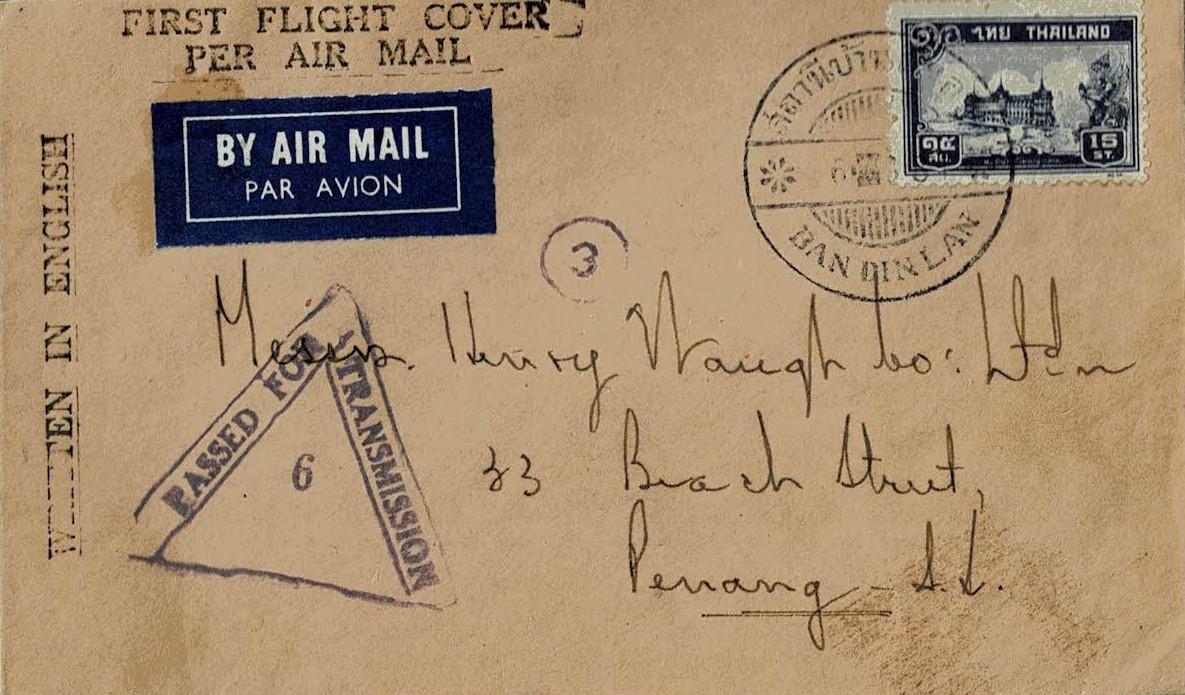 FIRST FLIGHT COVER
PER AIR MAIL
BY AIR MAIL
PAR AVION
WRITTEN IN ENGLISH
ไทย THAILAND
๑๕ 15
สต. ST.
สถานีบ้าน
BAN DIN LAN
3
PASSED FOR TRANSMISSION
6
Messrs. Henry Waugh Co: Ltd
33 Beach Street,
Penang - S.S.